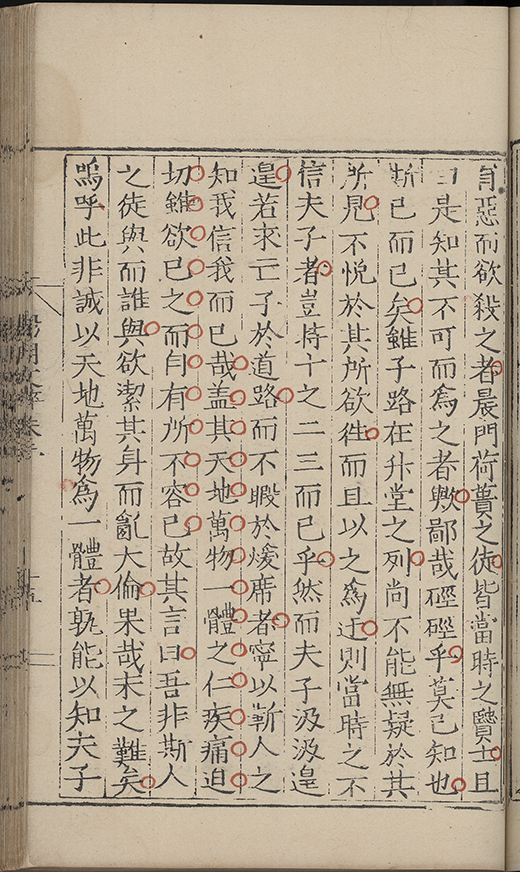 而惡而欲殺之者晨門荷蕢之徒皆當時之賢士且
曰是知其不可而為之者歟鄙哉硜硜乎莫己知也
斯已而已矣雖子路在升堂之列尚不能無疑於其
所見不悅於其所欲徃而且以之為迂則當時之不
信夫子者豈特十之二三而已乎然而夫子汲汲遑
遑若求亡子於道路而不暇於煖席者寧以蘄人之
知我信我而已哉盖其天地萬物一體之仁疾痛迫
切雖欲已之而自有所不容已故其言曰吾非斯人
之徒與而誰與欲潔其身而亂大倫果哉末之難矣
嗚呼此非誠以天地萬物為一體者孰能以知夫子